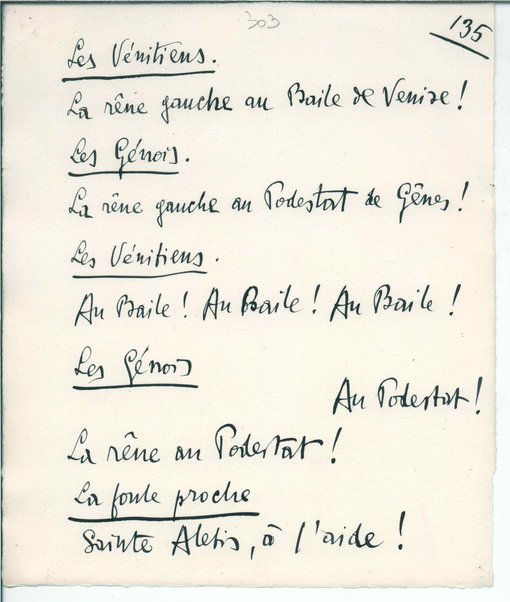 303
135
Les Vénitiens.
La rêne gauche au Baile de Venise!
Les Génois.
La rêne gauche au Podestat de Gênes!
Les Vénitiens.
Au Baile! Au Baile! Au Baile!
Les Génois
Au Podestat!
La rêne au Podestat!
La foule proche
Sainte Aletis, à l'aide!